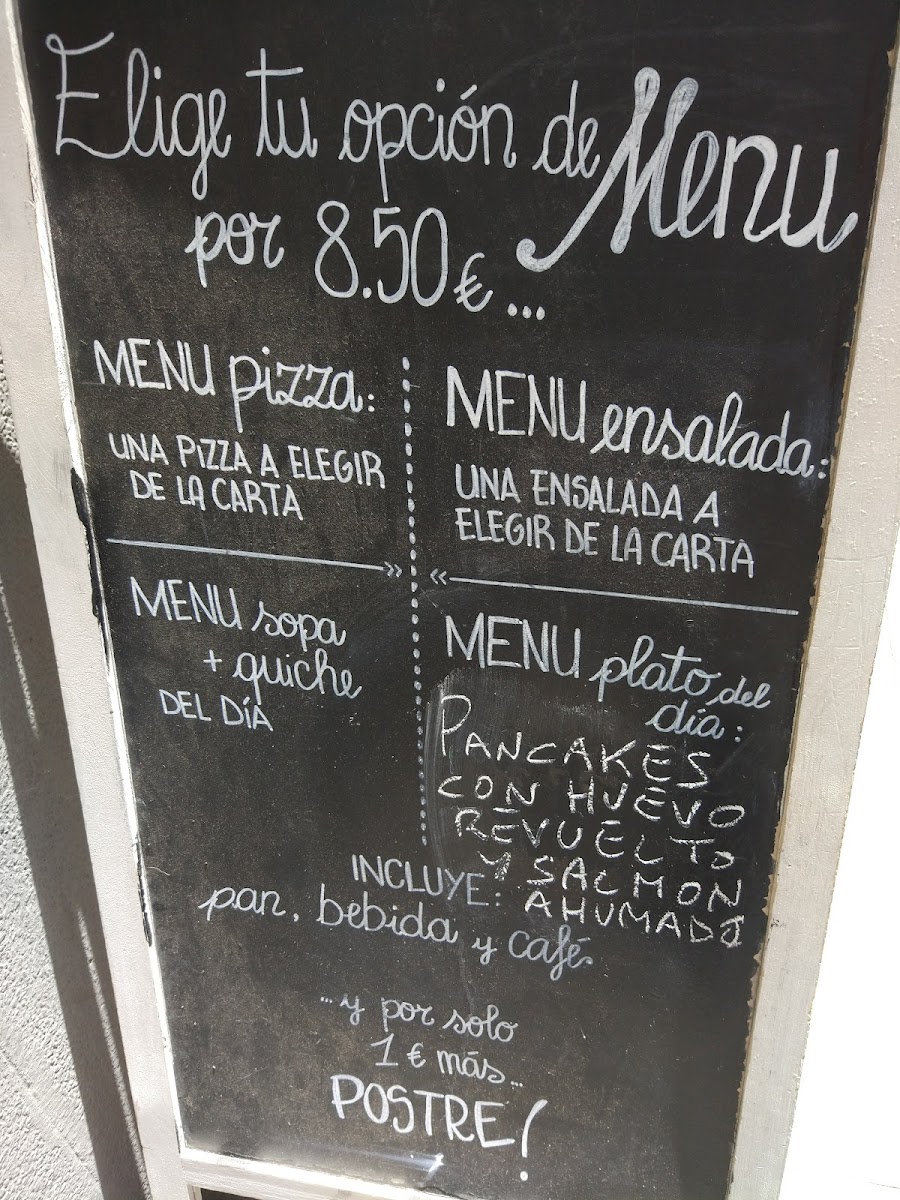 Elige tu opción de Menu
por 8.50€...
MENU pizza:
UNA PIZZA A ELEGIR
DE LA CARTA
MENU ensalada:
UNA ENSALADA A
ELEGIR DE LA CARTA
MENU sopa
+ quiche
DEL DÍA
MENU plato del
día:
PANCAKES
CON HUEVO
REVUELTO
Y SALMON
AHUMADO
INCLUYE:
pan, bebida y café
...y por solo
1€ más...
POSTRE!